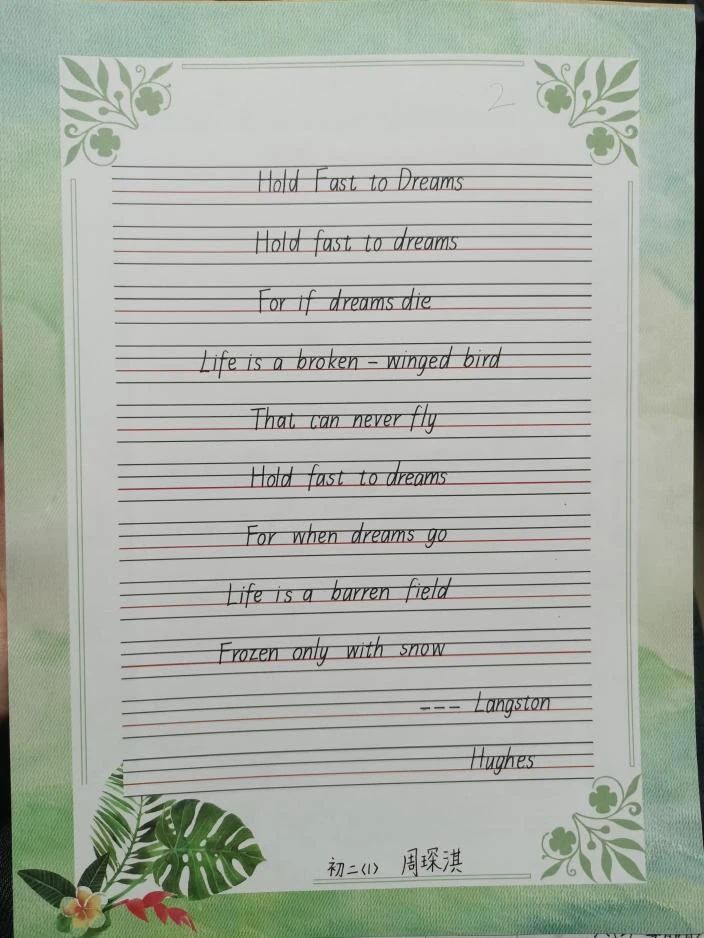 2
Hold Fast to Dreams
Hold fast to dreams
For if dreams die
Life is a broken - winged bird
That can never fly
Hold fast to dreams
For when dreams go
Life is a barren field
Frozen only with snow
--- Langston
Hughes
初二(1) 周琛淇